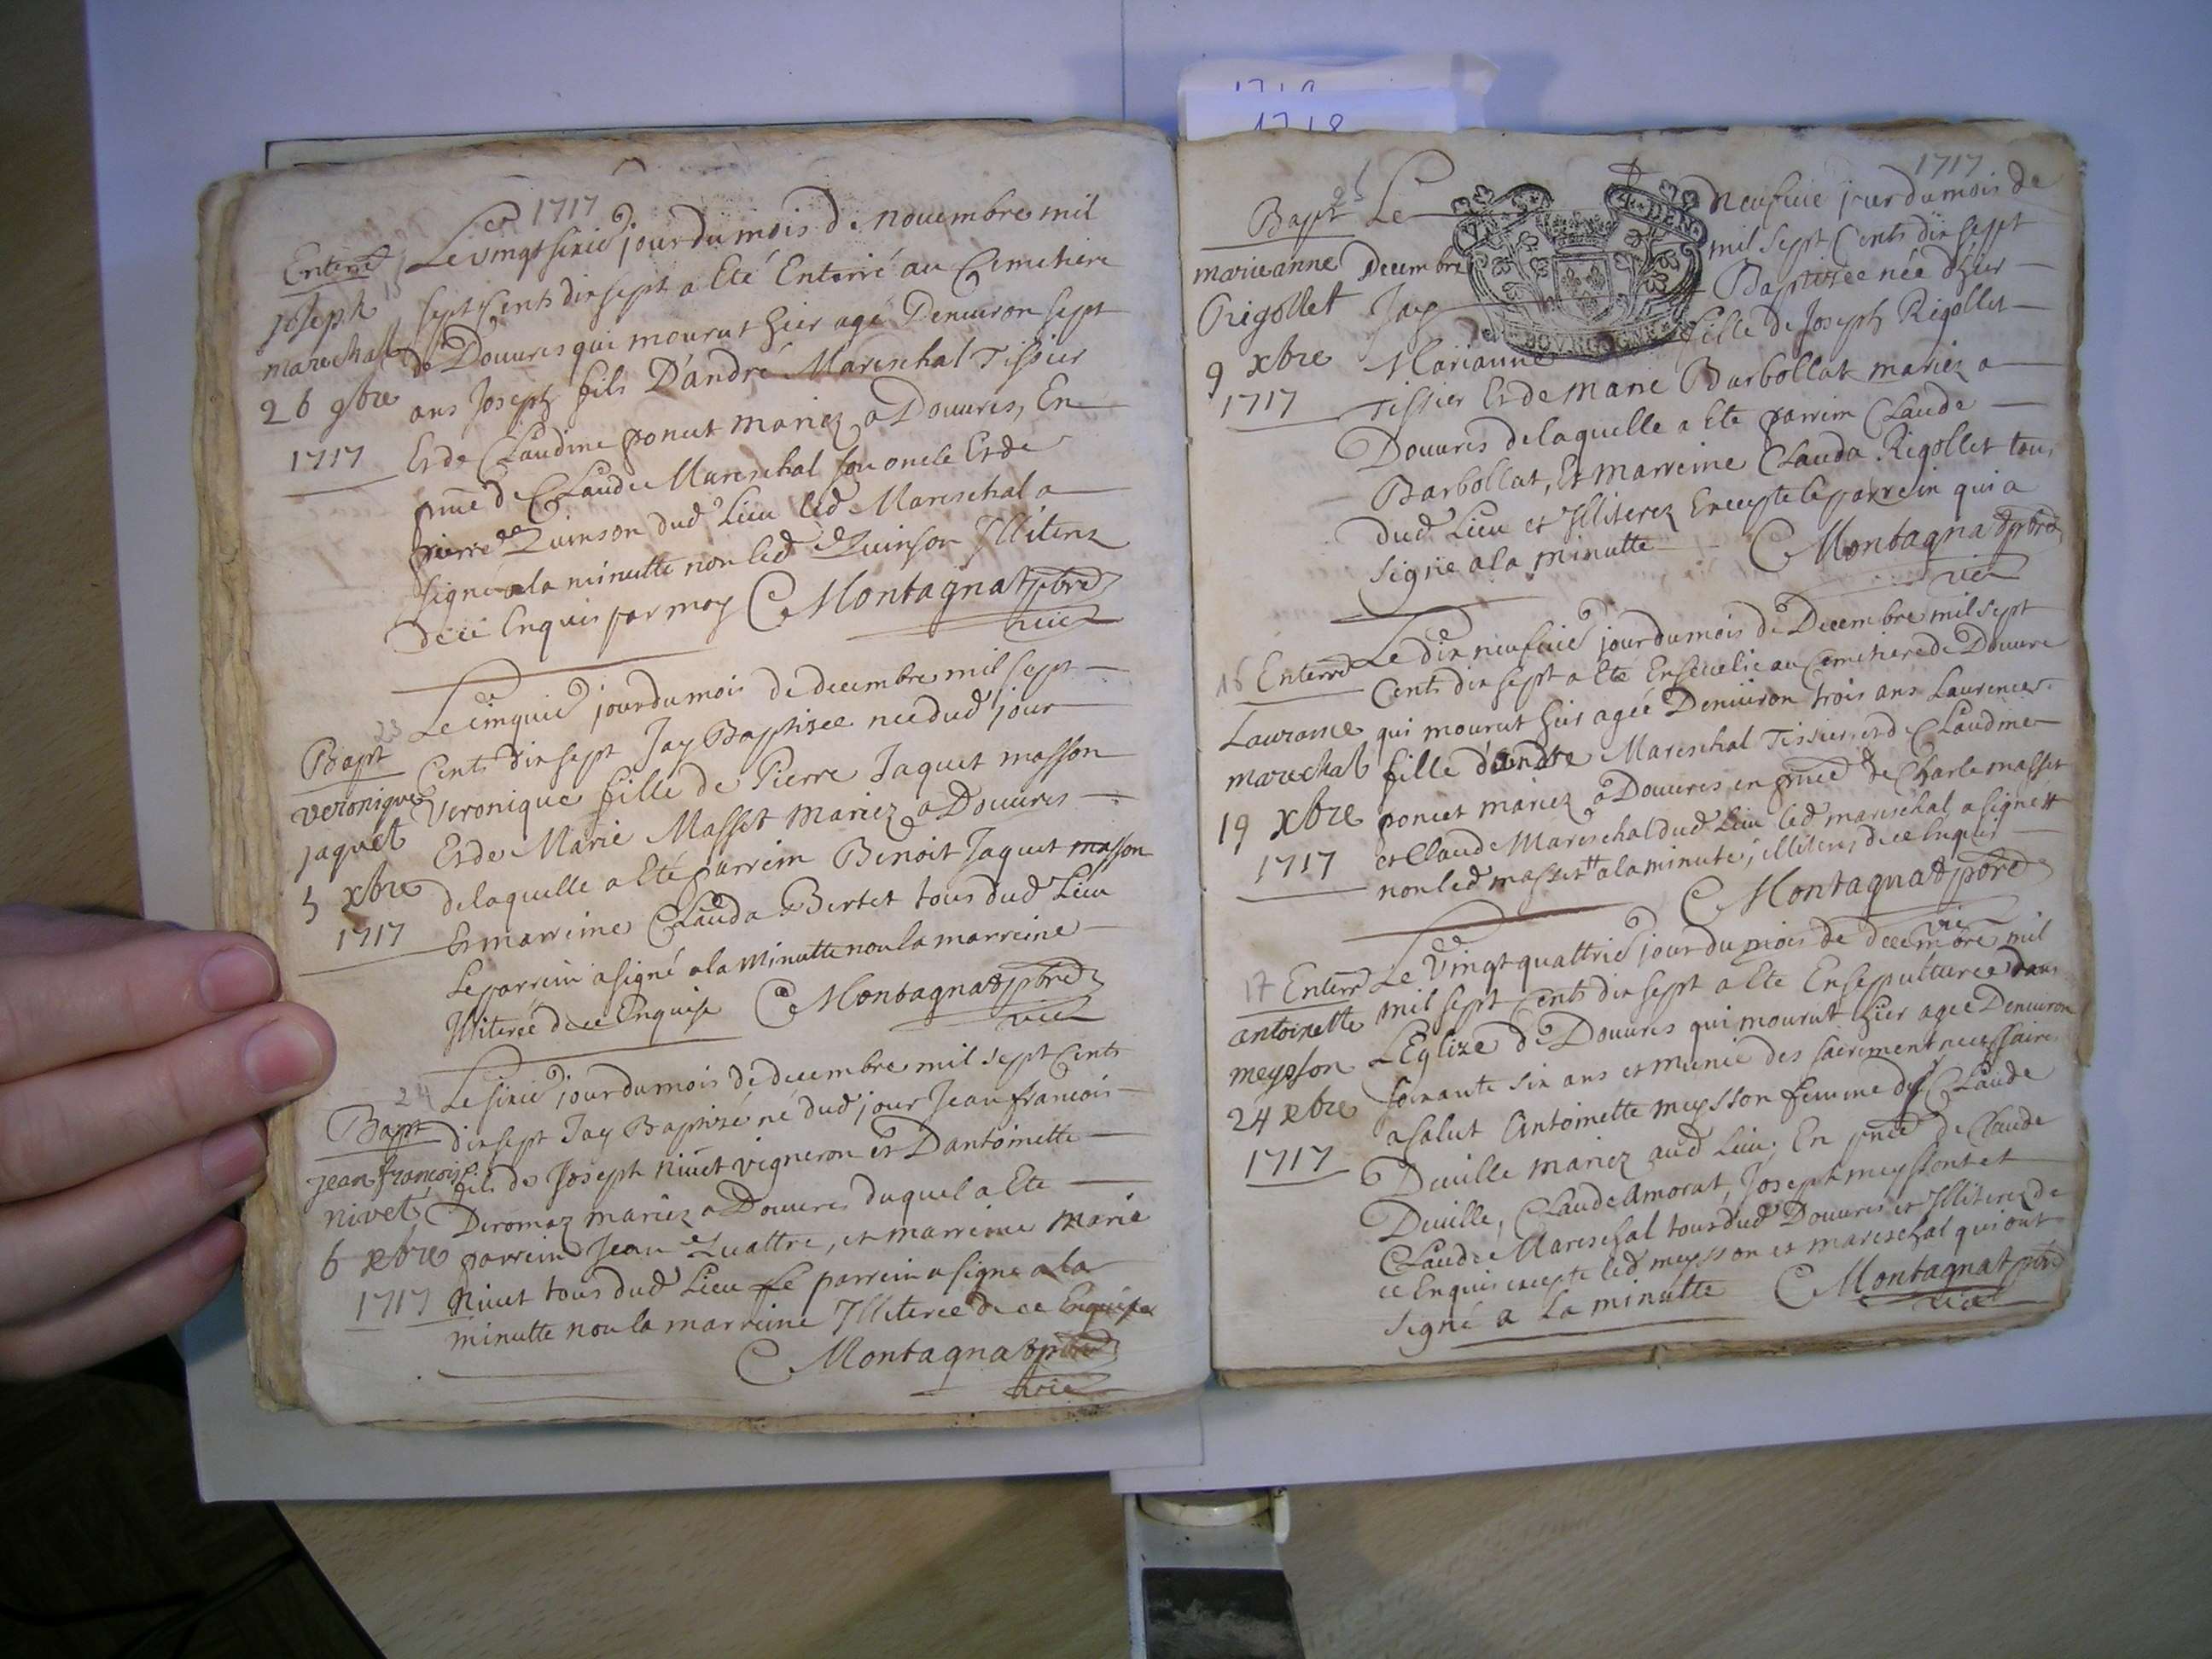 1719
1718
1717
Enterré
Joseph
marechal
26 9bre
1717
15
Le vingt sixie jour du mois de nouembre mil
sept Cents dix sept a Eté Enterré au Cimetiere
de Douures qui mourut hier agé Denuiron sept
ans Joseph fils D'andré Mareschal Tissier
Et de Claudine poncet mariez a Douures, En
pnce de Claude Mareschal son oncle Et de
Pierre Quinson dud Lieu led Mareschal a
signé a la minutte non led Quinson Illiterz
de ce Enquis par moy C Montagnat pbre
vic
Bapt
23
veronique
jaquet
5 xbre
1717
Le cinquie jour du mois de decembre mil sept
Cents dix sept Jay Baptisee nee dud jour
Veronique fille de Pierre Jaquet masson
Et de Marie Masset mariez a Douures
de laquelle a Eté parrein Benoit Jaquet masson
Et marreine Clauda Bertet tous dud Lieu
Le parrein a signé a la Minutte non la marreine
Illiterée de ce Enquise C Montagnat pbre
vic
24
Bapt
jean françois
nivet
6 xbre
1717
Le sixie jour du mois de decembre mil sept Cents
dix sept Jay Baptisé né dud jour Jean francois
fils de Joseph Niuet vigneron et Dantoinette
Deromaz mariez a Douures duquel a Ete
parrein Jean Quattre, et marreine Marie
Niuet tous dud Lieu Le parrein a signe a la
minutte non la marreine Illiteree de ce Enquise
C Montagnat pbre
vic
1717
25
Bapt
marie anne
Rigollet
9 xbre
1717
Le neufuie jour du mois de
Decembre mil sept Cents dix sept
Jay Baptisee née d'hier
Marianne fille de Joseph Rigollet
DEN
BOVRGOGNE
Tissier Et de Marie Barbollat mariez a
Douures de laquelle a Ete parrein Claude
Barbollat, Et marreine Clauda Rigollet tous
dud Lieu et Illiterez Excepte le parrein qui a
signe a la minutte C Montagnat pbre
vic
16 Enterré
Laurance
marechal
19 xbre
1717
Le dix neufuie jour du mois de Decembre mil sept
Cents dix sept a Ete Enseuelie au Cimetiere de Douure
qui mourut hier agée Denuiron trois ans Laurence
fille d'andre Mareschal Tissier et de Claudine
poncet mariez a Douures en pnce de Charle masset
et Claude Mareschal dud Lieu led mareschal a signe
non led masset a la minute, illiteres de ce Enquis
C Montagnat pbre
vic
17 Enterré
antoinette
meysson
24 xbre
1717
Le Vingt quattrie jour du mois de decembre mil
mil sept Cents dix sept a Ete Ensepulturee dans
L'Eglize de Douures qui mourut hier agee Denuiron
soixante six ans et munie des sairement necessaires
a salut Antoinette meysson femme de Claude
Deuille mariez aud Lieu, En pnce de Claude
Deuille, Claude Amorat, Joseph meysson et
Claude Mareschal tous dud Douures et Illiterez de
ce Enquis excepte led meysson et mareschal qui ont
signé a La minutte C Montagnat pbre
vic